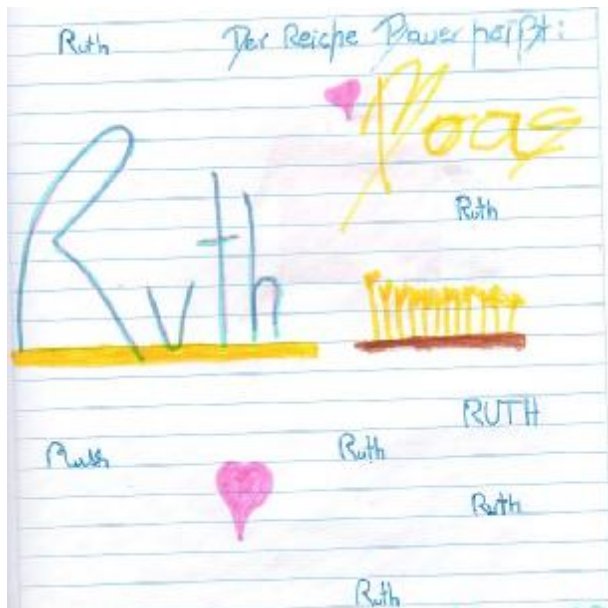 Ruth
Der Reiche Bauer heißt:
Boas
Ruth
Ruth
RUTH
Ruth
Ruth
Ruth
Ruth